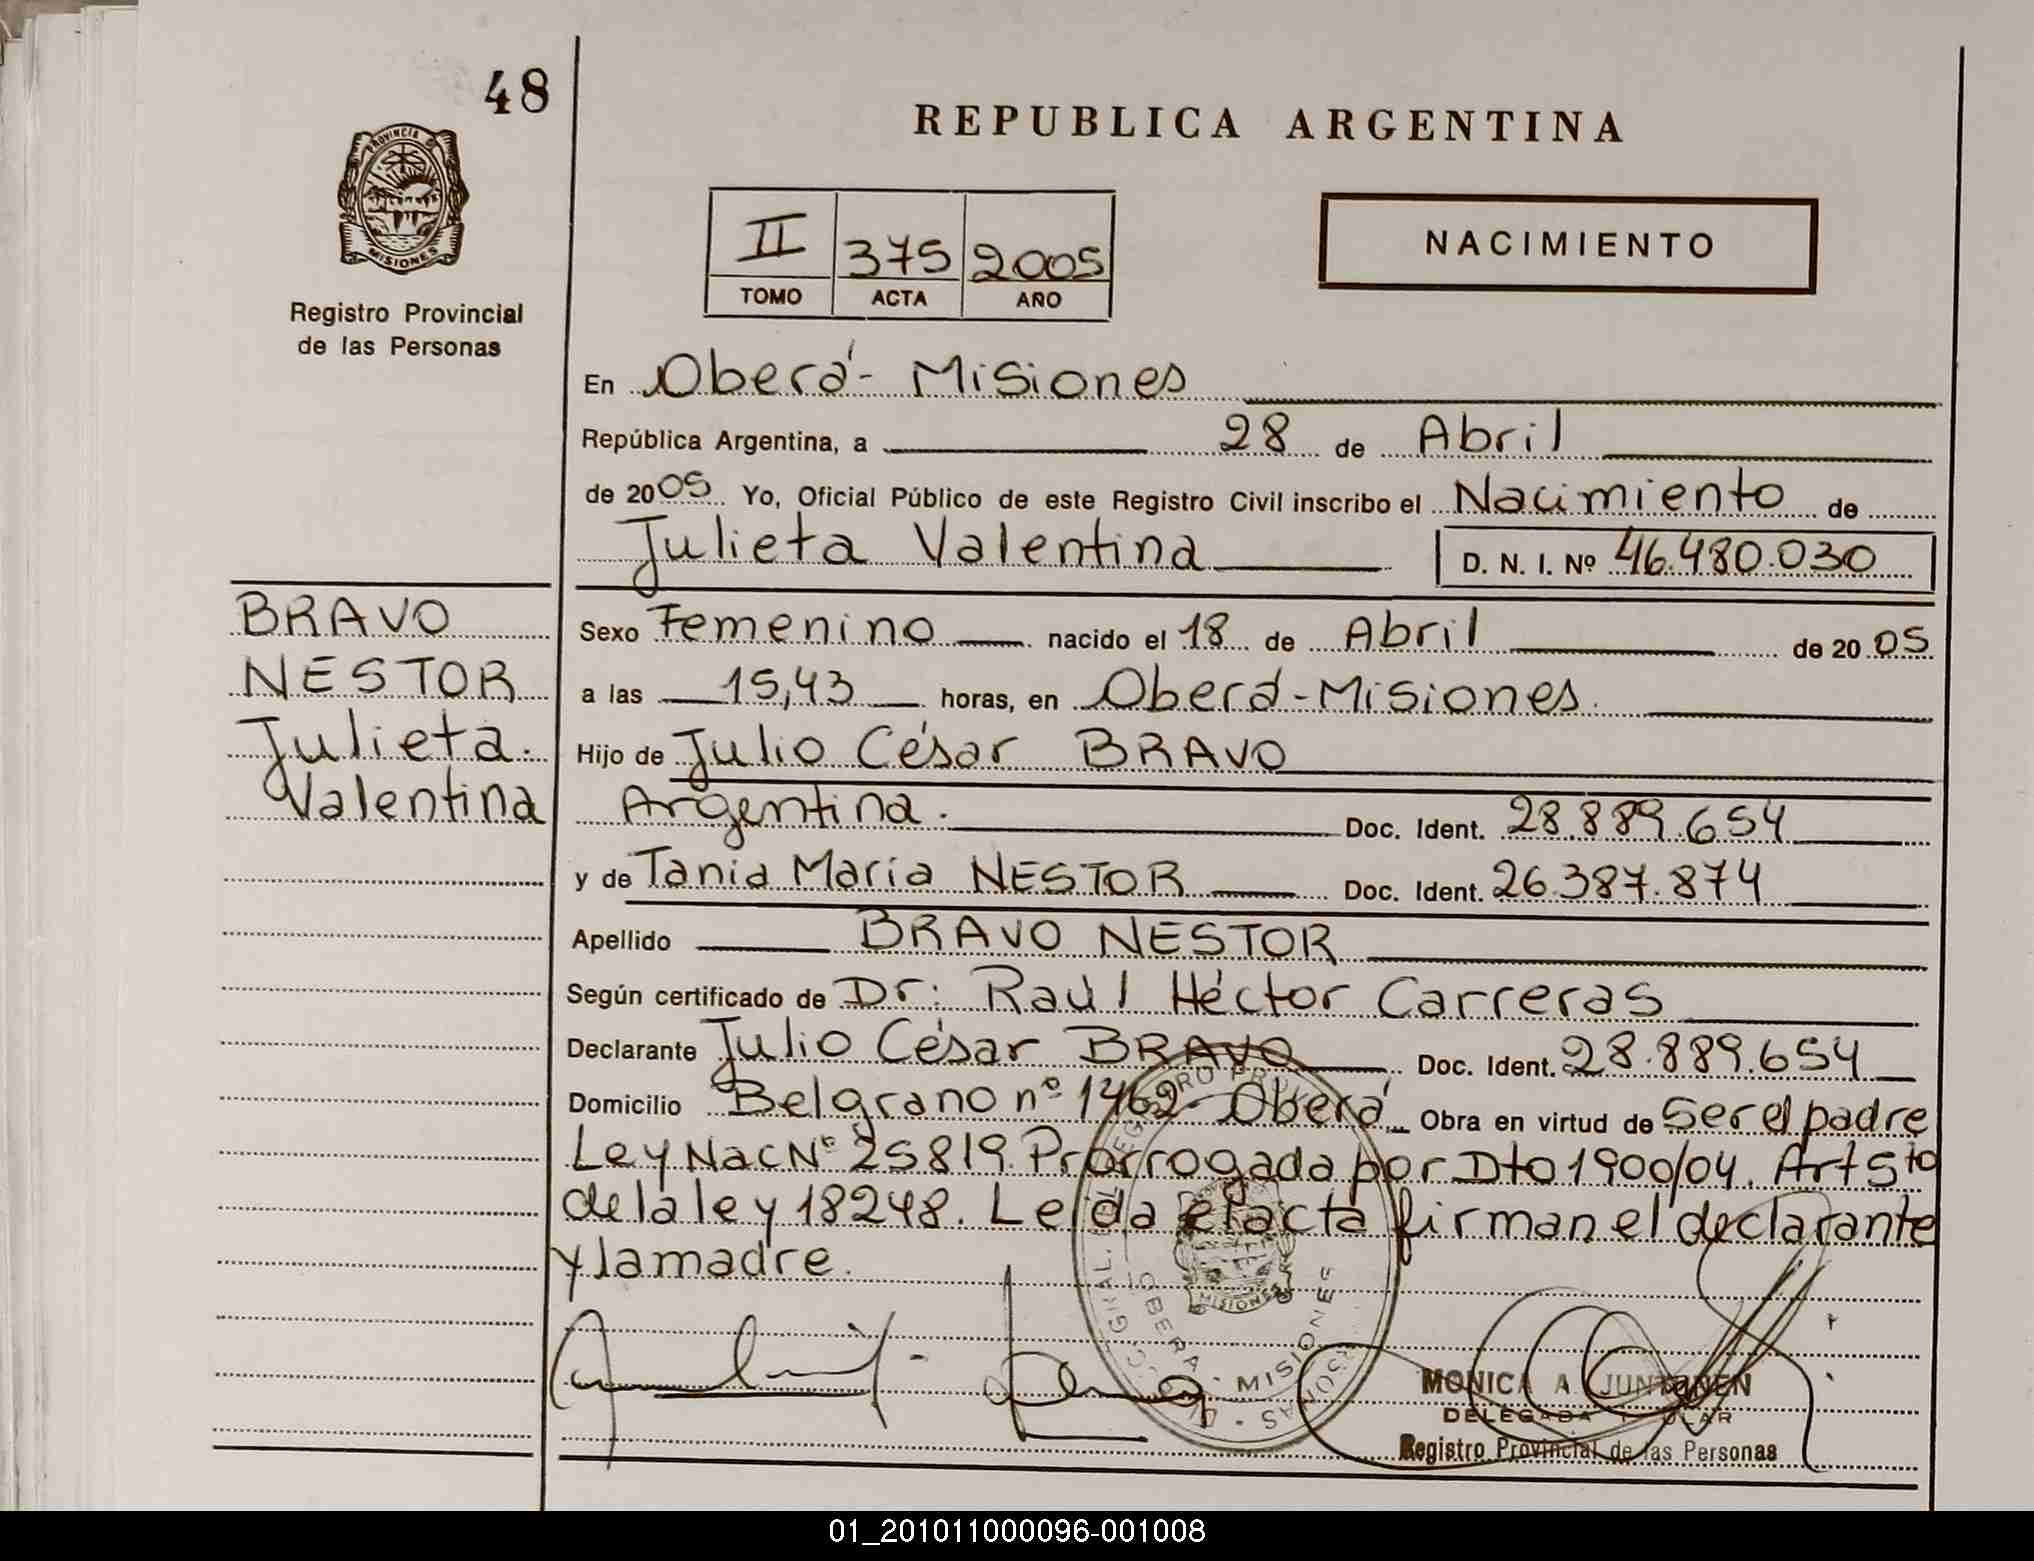 48
REPUBLICA ARGENTINA
PROVINCIA DE
MISIONES
Registro Provincial
de las Personas
II 375 2005
TOMO ACTA AÑO
NACIMIENTO
En Oberá - Misiones
República Argentina, a 28 de Abril
de 2005 Yo, Oficial Público de este Registro Civil inscribo el Nacimiento de
Julieta Valentina D. N. I. Nº 46.480.030
BRAVO
NESTOR
Julieta
Valentina
Sexo Femenino nacido el 18 de Abril de 2005
a las 15,43 horas, en Oberá - Misiones.
Hijo de Julio César BRAVO
Argentina. Doc. Ident. 28.889.654
y de Tania Maria NESTOR Doc. Ident. 26.387.874
Apellido BRAVO NESTOR
Según certificado de Dr: Raúl Héctor Carreras
Declarante Julio César BRAVO Doc. Ident. 28.889.654
Domicilio Belgrano nº 1462 - Oberá Obra en virtud de Ser el padre
Ley Nac Nº 25819. Prorrogada por Dto 1900/04. Art 5to
de la ley 18248. Leída el acta firman el declarante
y la madre.
OBERA - MISIONES
MISIONES
MONICA A. JUNTONEN
DELEGADA TITULAR
Registro Provincial de las Personas
01_201011000096-001008